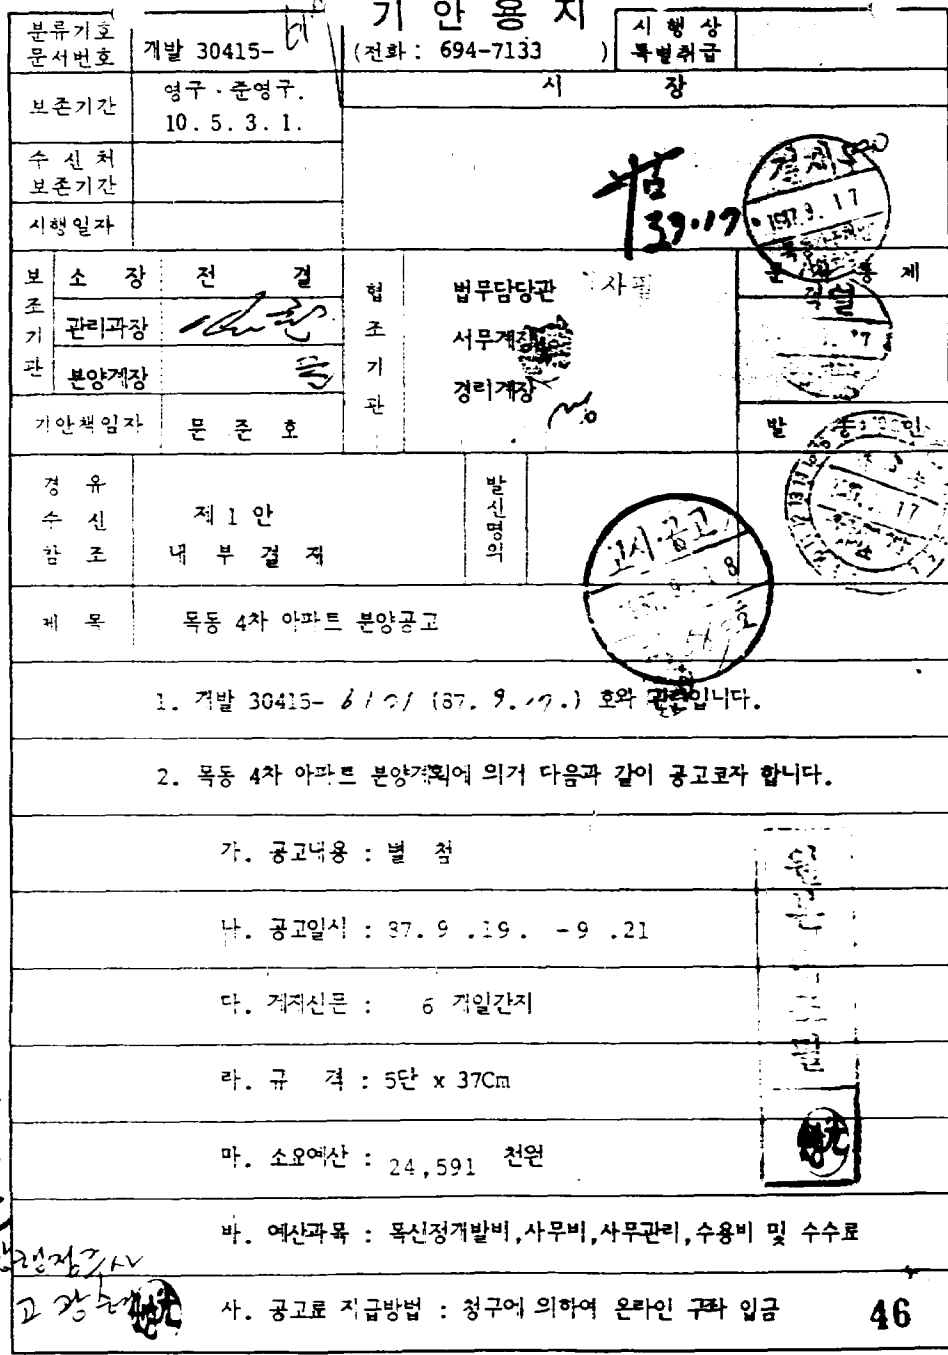 기 안 용 지
분류기호
문서번호
개발 30415-
(전화 : 694-7133 )
시 행 상
특별취급
보존기간
영구 · 준영구.
10. 5. 3. 1.
시 장
수 신 처
보존기간
시행일자
보조기관
소 장 전 결
관리과장
분양계장
기안책임자 문 준 호
협조기관
법무담당관
서무계장
경리계장
문 서 통 제
발 송 인
경 유
수 신
참 조
제 1 안
내 부 결 재
발신명의
고시·공고
제 목 목동 4차 아파트 분양공고
1. 개발 30415- (87. 9. 17.) 호와 관련입니다.
2. 목동 4차 아파트 분양계획에 의거 다음과 같이 공고코자 합니다.
가. 공고내용 : 별 첨
나. 공고일시 : 87. 9 .19. - 9 .21
다. 게재신문 : 6 개일간지
라. 규 격 : 5단 x 37Cm
마. 소요예산 : 24,591 천원
바. 예산과목 : 목신정개발비,사무비,사무관리,수용비 및 수수료
사. 공고료 지급방법 : 청구에 의하여 온라인 구좌 입금
46